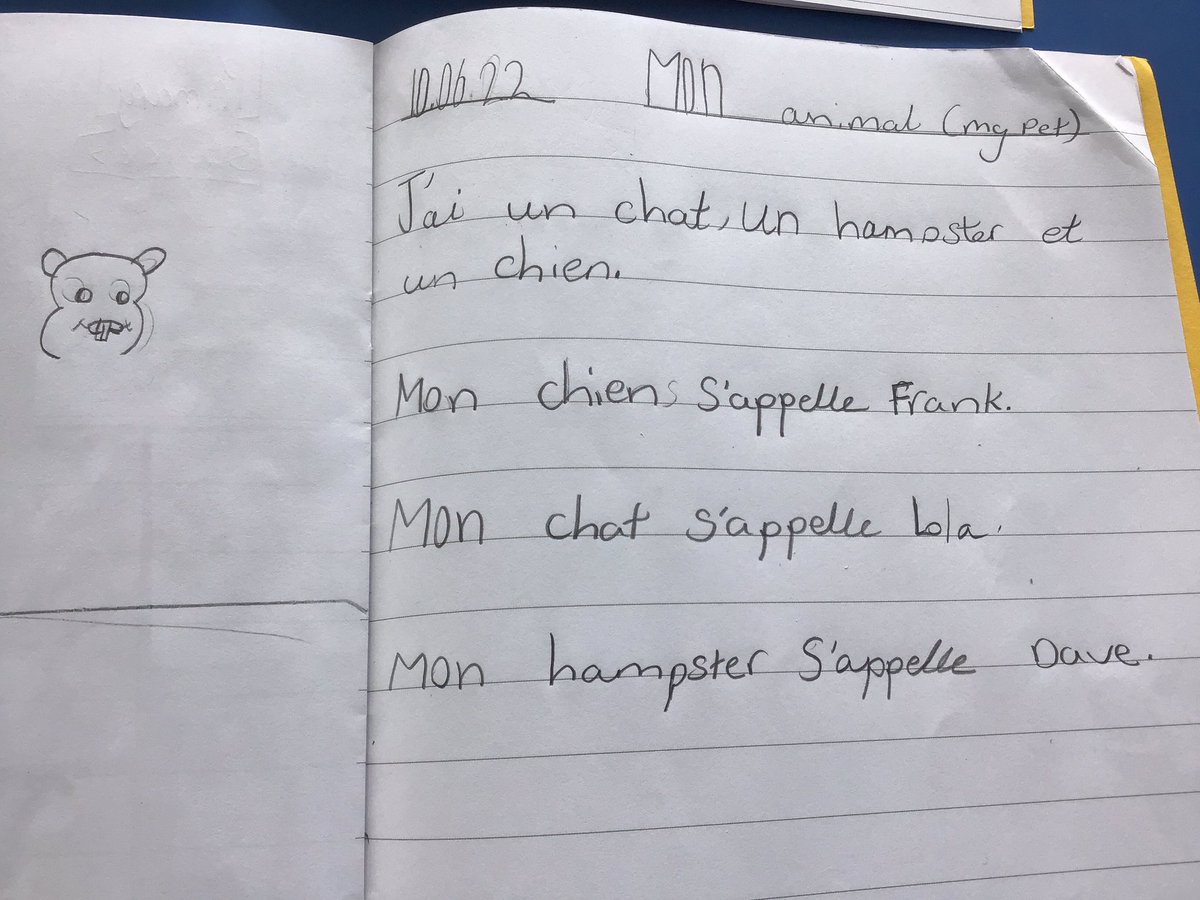 10.06.22 Mon animal (my pet)
J'ai un chat, un hampster et
un chien.
Mon chien s'appelle Frank.
Mon chat s'appelle Lola.
Mon hampster s'appelle Dave.